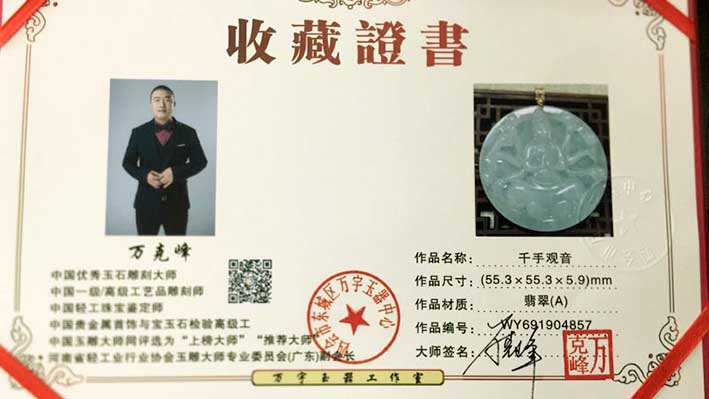 收藏證書
万克峰
中国优秀玉石雕刻大师
中国一级/高级工艺品雕刻师
中国轻工珠宝鉴定师
中国贵金属首饰与宝玉石检验高级工
中国玉雕大师网评选为“上榜大师” “推荐大师”
河南省轻工业行业协会玉雕大师专业委员会(广东)副会长
四会市东城区万字玉器中心
作品名称: 千手观音
作品尺寸: (55.3×55.3×5.9)mm
作品材质: 翡翠(A)
作品编号: WY691904857
大师签名:
万克峰
万字玉器工作室